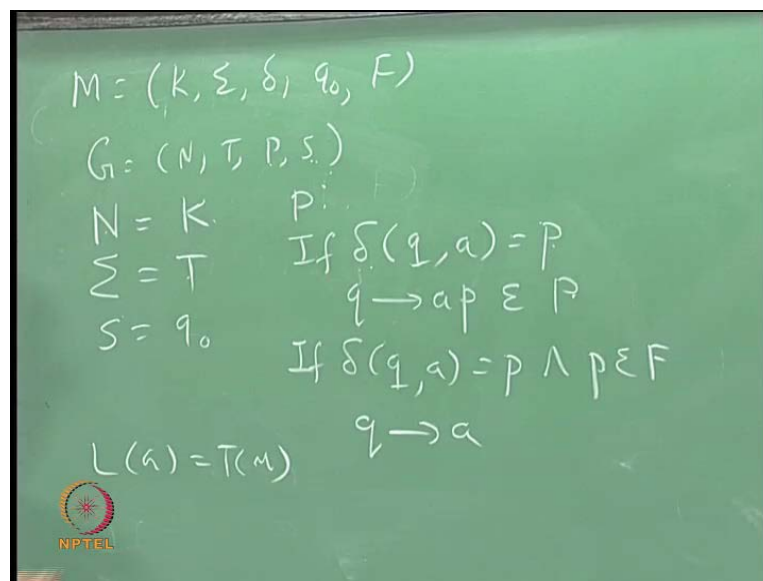 M = (K, Σ, δ, q₀, F)
G = (N, T, P, S)
N = K
Σ = T
S = q₀
P:
If δ(q, a) = p
q → ap ε P
If δ(q, a) = p ∧ p ε F
q → a
L(G) = T(M)
NPTEL